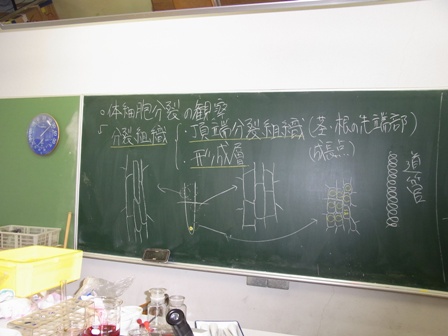 ○体細胞分裂の観察
分裂組織
・頂端分裂組織(茎・根の先端部)
(成長点)
・形成層
道管